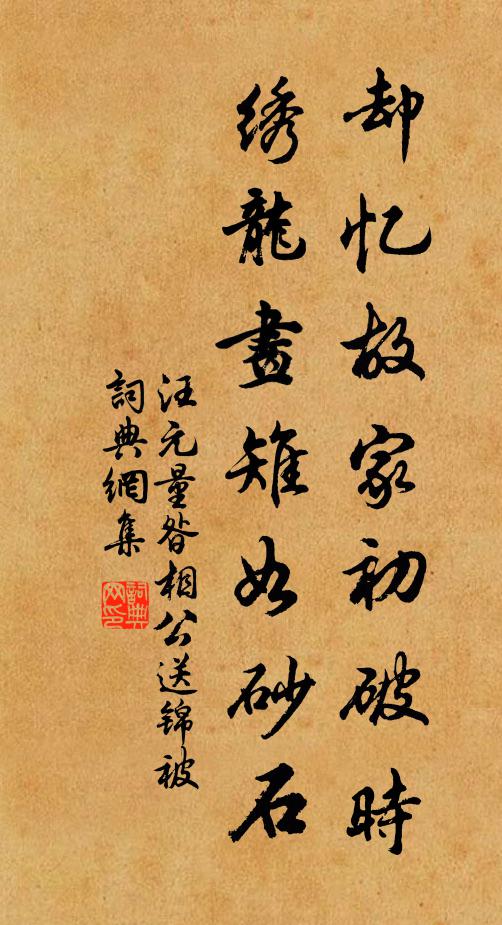 却忆故家初破時
绣龍畫雉如砂石
汪元量昝相公送錦被
詞典網集
詞典網印